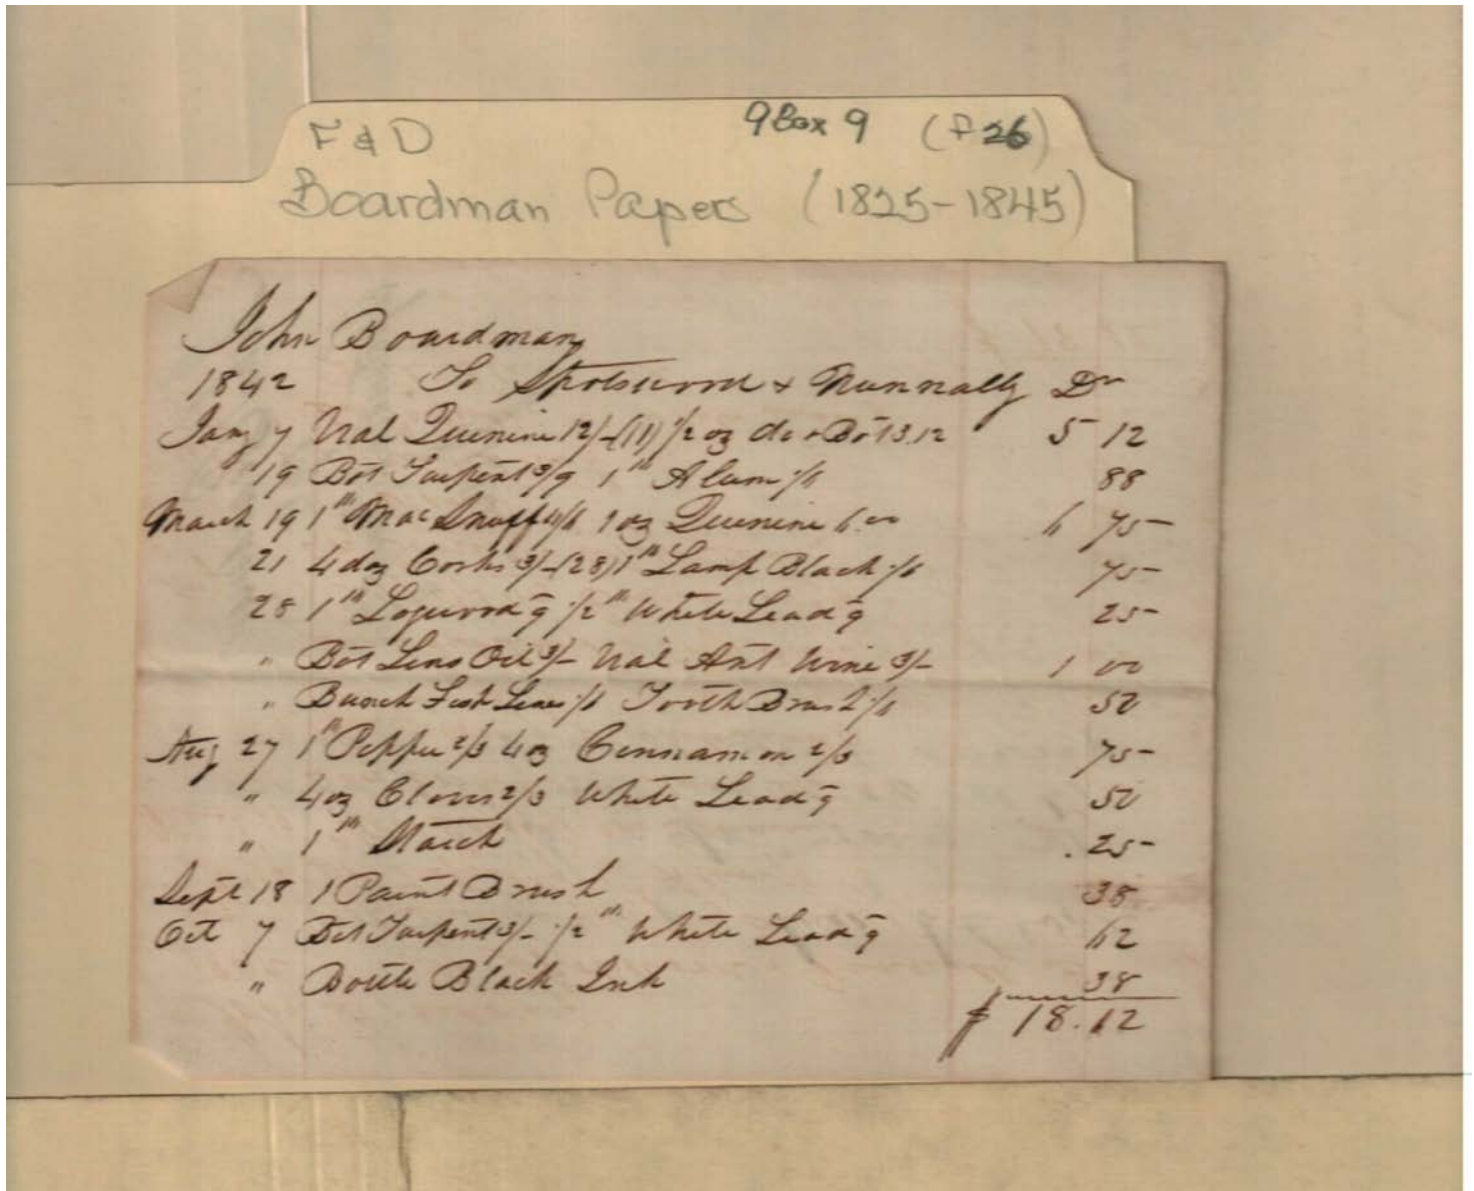 F & D 9Box 9 (f 26)
Boardman Papers (1825-1845)
John Boardman
1842 To Spotswood & Nunnally Dr
Jany 7 Vial Quinine 12/- (11) 1/2 oz do & Bot 3.12 5 12
19 Bot Turpent 3/9 1 lb Alum /6 88
March 19 1 lb Mac Snuff 4/6 1 oz Quinine 6.00 6 75
21 4 doz Corks 3/- (28) 1 lb Lamp Black /6 75
28 1 lb Logwood 9 1/2 lb White Lead 9 25
" Bot Lins Oil 3/- Vial Ant Wine 3/- 1 00
" Bunch Fish Lines /6 Tooth Brush /6 50
Aug 27 1 lb Pepper 2/3 4 oz Cinnamon 2/3 75
" 4 oz Cloves 2/3 White Lead 9 50
" 1 lb Starch .25
Sept 18 1 Paint Brush 38
Oct 7 Bot Turpent 3/- 1/2 lb White Lead 9 62
" Bottle Black Ink 38
$ 18.12